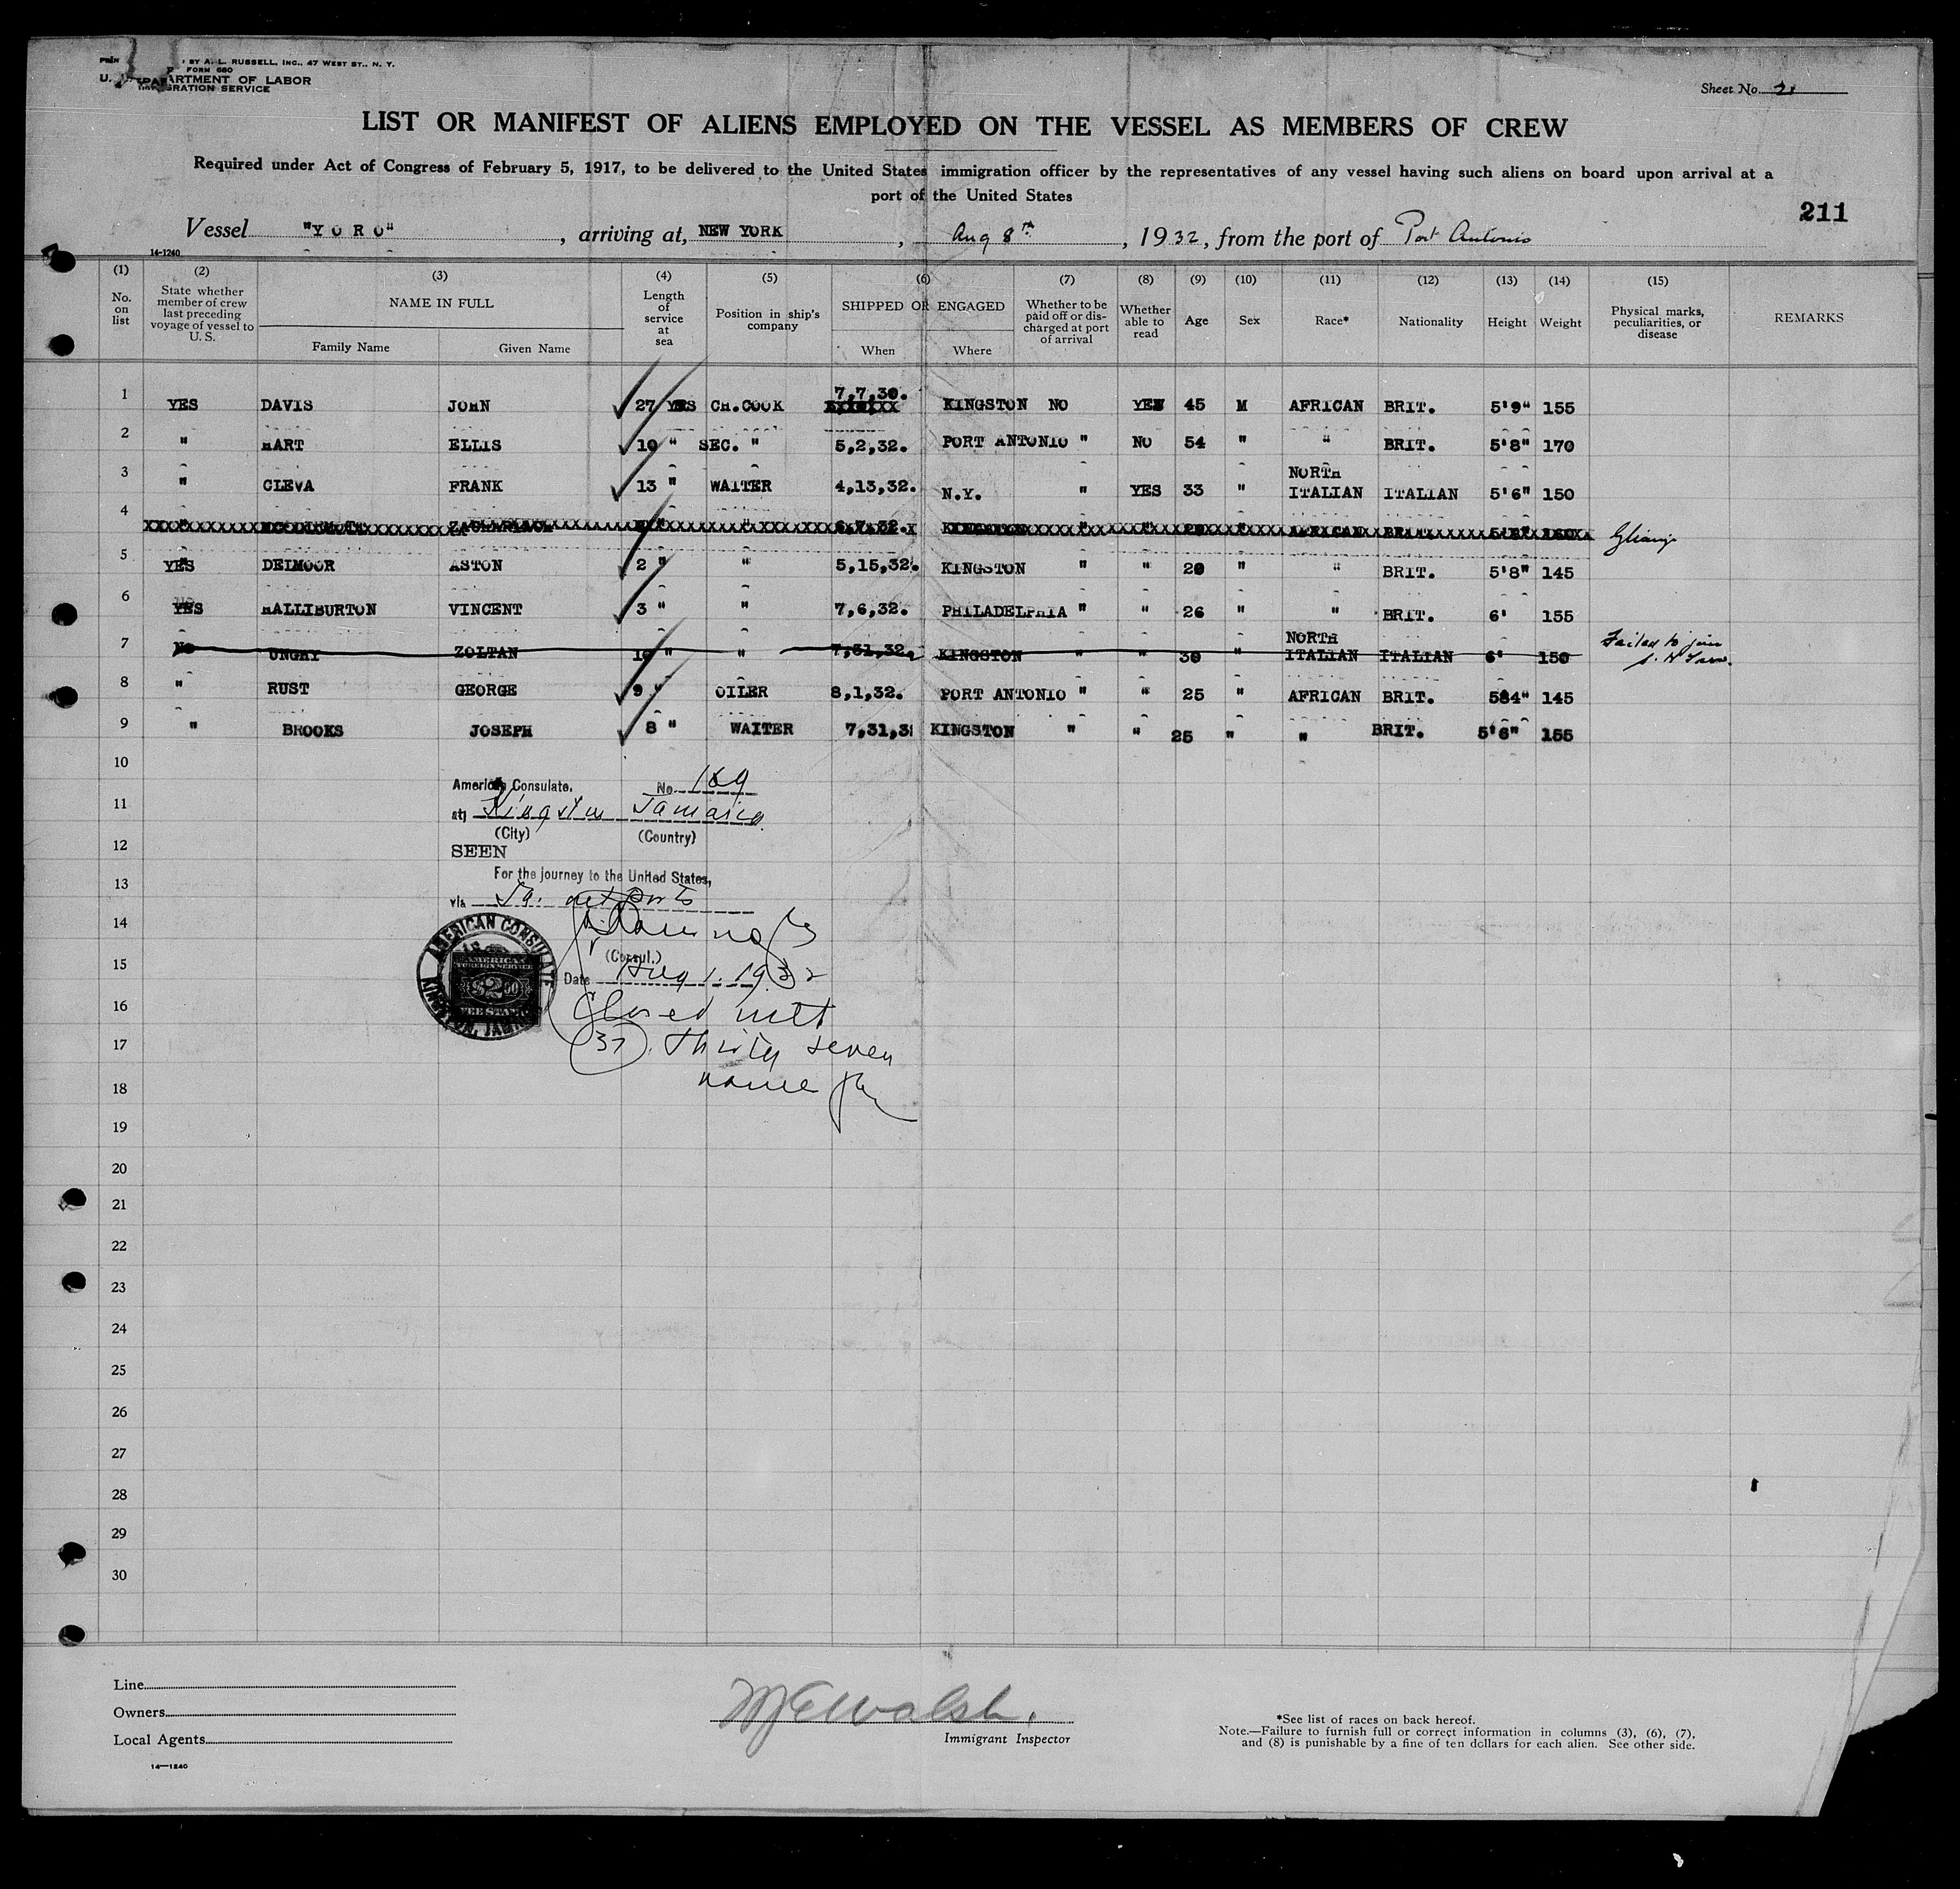 BY A. L. RUSSELL, INC., 47 WEST ST., N. Y.
FORM 680
U. DEPARTMENT OF LABOR
IMMIGRATION SERVICE
Sheet No.
LIST OR MANIFEST OF ALIENS EMPLOYED ON THE VESSEL AS MEMBERS OF CREW
Required under Act of Congress of February 5, 1917, to be delivered to the United States immigration officer by the representatives of any vessel having such aliens on board upon arrival at a
port of the United States
211
Vessel "YORO", arriving at, NEW YORK, Aug 8th, 1932, from the port of Port Antonio
14-1240
(1) (2) (3) (4) (5) (6) (7) (8) (9) (10) (11) (12) (13) (14) (15)
No. on list State whether member of crew last preceding voyage of vessel to U. S. NAME IN FULL Family Name Given Name Length of service at sea Position in ship's company SHIPPED OR ENGAGED When Where Whether to be paid off or discharged at port of arrival Whether able to read Age Sex Race* Nationality Height Weight Physical marks, peculiarities, or disease REMARKS
1 YES DAVIS JOHN 27 YRS CH.COOK 7,7,30. KINGSTON NO YES 45 M AFRICAN BRIT. 5'9" 155
2 " HART ELLIS 10 " SEC. " 5,2,32. PORT ANTONIO " NO 54 " " BRIT. 5'8" 170
3 " CLEVA FRANK 13 " WAITER 4,13,32. N.Y. " YES 33 " NORTH ITALIAN ITALIAN 5'6" 150
4 " " 6,7,32. KINGSTON " " " AFRICAN BRIT.
5 YES DEIMOOR ASTON 2 " " 5,15,32. KINGSTON " " 20 " " BRIT. 5'8" 145
6 YES HALLIBURTON VINCENT 3 " " 7,6,32. PHILADELPHIA " " 26 " " BRIT. 6' 155
7 No UNGHY ZOLTAN 10 " " 7,31,32. KINGSTON " " 30 " NORTH ITALIAN ITALIAN 6' 150 Failed to join
8 " RUST GEORGE 9 " OILER 8,1,32. PORT ANTONIO " " 25 " AFRICAN BRIT. 584" 145
9 " BROOKS JOSEPH 8 " WAITER 7,31,3 KINGSTON " " 25 " " BRIT. 5'6" 155
10
American Consulate, No. 169
11
at Kingston Jamaica
(City) (Country)
12
SEEN
For the journey to the United States,
13
via Ja. outports
14
AMERICAN CONSULATE
KINGSTON, JAMAICA
AMERICAN FOREIGN SERVICE
$2.00
FEE STAMP
(Consul.)
15
Date Aug 1. 1932
16
Closed with
17
(37) thirty seven
18
name
19
20
21
22
23
24
25
26
27
28
29
30
Line
Owners
Local Agents
14—1240
M E Walsh.
Immigrant Inspector
*See list of races on back hereof.
Note.—Failure to furnish full or correct information in columns (3), (6), (7),
and (8) is punishable by a fine of ten dollars for each alien. See other side.